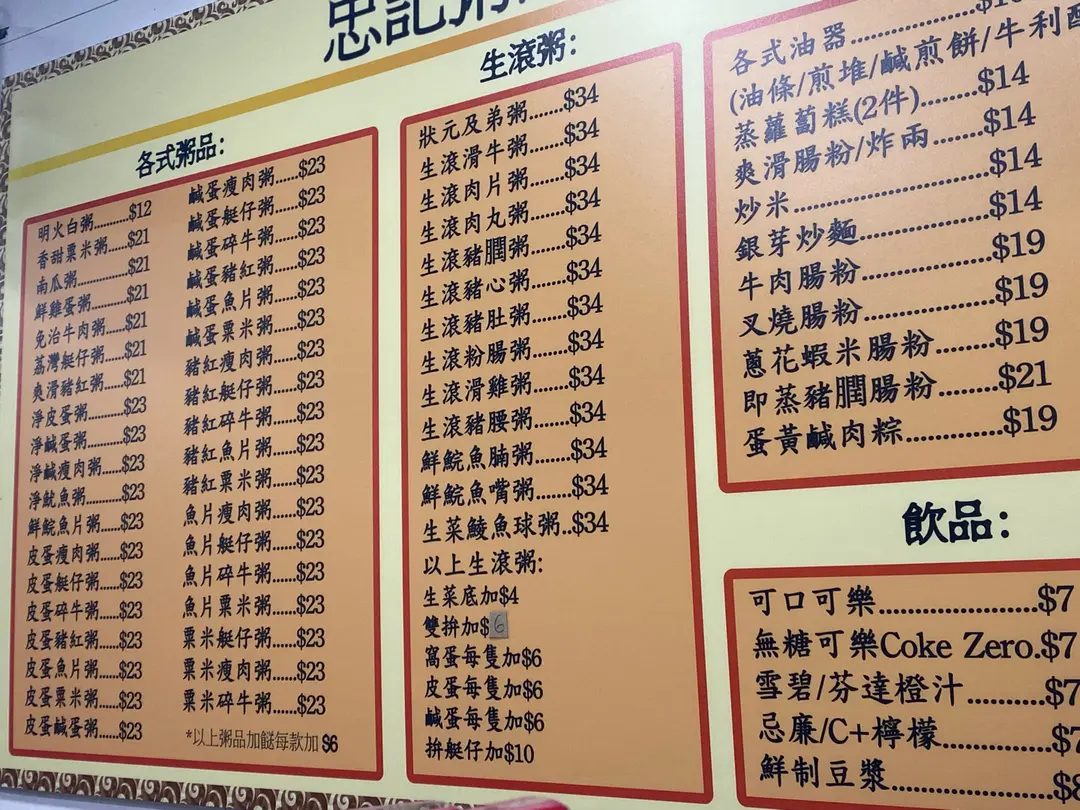 忠記粥
各式粥品:
明火白粥.........$12
香甜粟米粥......$21
南瓜粥............$21
鮮雞蛋粥.........$21
免治牛肉粥......$21
荔灣艇仔粥......$21
爽滑豬紅粥......$21
淨皮蛋粥.........$23
淨鹹蛋粥.........$23
淨鹹瘦肉粥......$23
淨魷魚粥.........$23
鮮鯇魚片粥......$23
皮蛋瘦肉粥......$23
皮蛋艇仔粥......$23
皮蛋碎牛粥......$23
皮蛋豬紅粥......$23
皮蛋魚片粥......$23
皮蛋粟米粥......$23
皮蛋鹹蛋粥......$23
鹹蛋瘦肉粥......$23
鹹蛋艇仔粥......$23
鹹蛋碎牛粥......$23
鹹蛋豬紅粥......$23
鹹蛋魚片粥......$23
鹹蛋粟米粥......$23
豬紅瘦肉粥......$23
豬紅艇仔粥......$23
豬紅碎牛粥......$23
豬紅魚片粥......$23
豬紅粟米粥......$23
魚片瘦肉粥......$23
魚片艇仔粥......$23
魚片碎牛粥......$23
魚片粟米粥......$23
粟米艇仔粥......$23
粟米瘦肉粥......$23
粟米碎牛粥......$23
*以上粥品加餸每款加 $6
生滾粥:
狀元及弟粥.......$34
生滾滑牛粥.......$34
生滾肉片粥.......$34
生滾肉丸粥.......$34
生滾豬膶粥.......$34
生滾豬心粥.......$34
生滾豬肚粥.......$34
生滾粉腸粥.......$34
生滾滑雞粥.......$34
生滾豬腰粥.......$34
鮮鯇魚腩粥.......$34
鮮鯇魚嘴粥.......$34
生菜鯪魚球粥..$34
以上生滾粥:
生菜底加$4
雙拚加$6
窩蛋每隻加$6
皮蛋每隻加$6
鹹蛋每隻加$6
拚艇仔加$10
各式油器
(油條/煎堆/鹹煎餅/牛利酥
蒸蘿蔔糕(2件)........$14
爽滑腸粉/炸兩......$14
炒米......................$14
銀芽炒麵...............$14
牛肉腸粉...............$19
叉燒腸粉...............$19
蔥花蝦米腸粉........$19
即蒸豬膶腸粉.......$21
蛋黃鹹肉粽............$19
飲品:
可口可樂...................$7
無糖可樂Coke Zero.$7
雪碧/芬達橙汁.........$7
忌廉/C+檸檬..............$7
鮮制豆漿...................$8